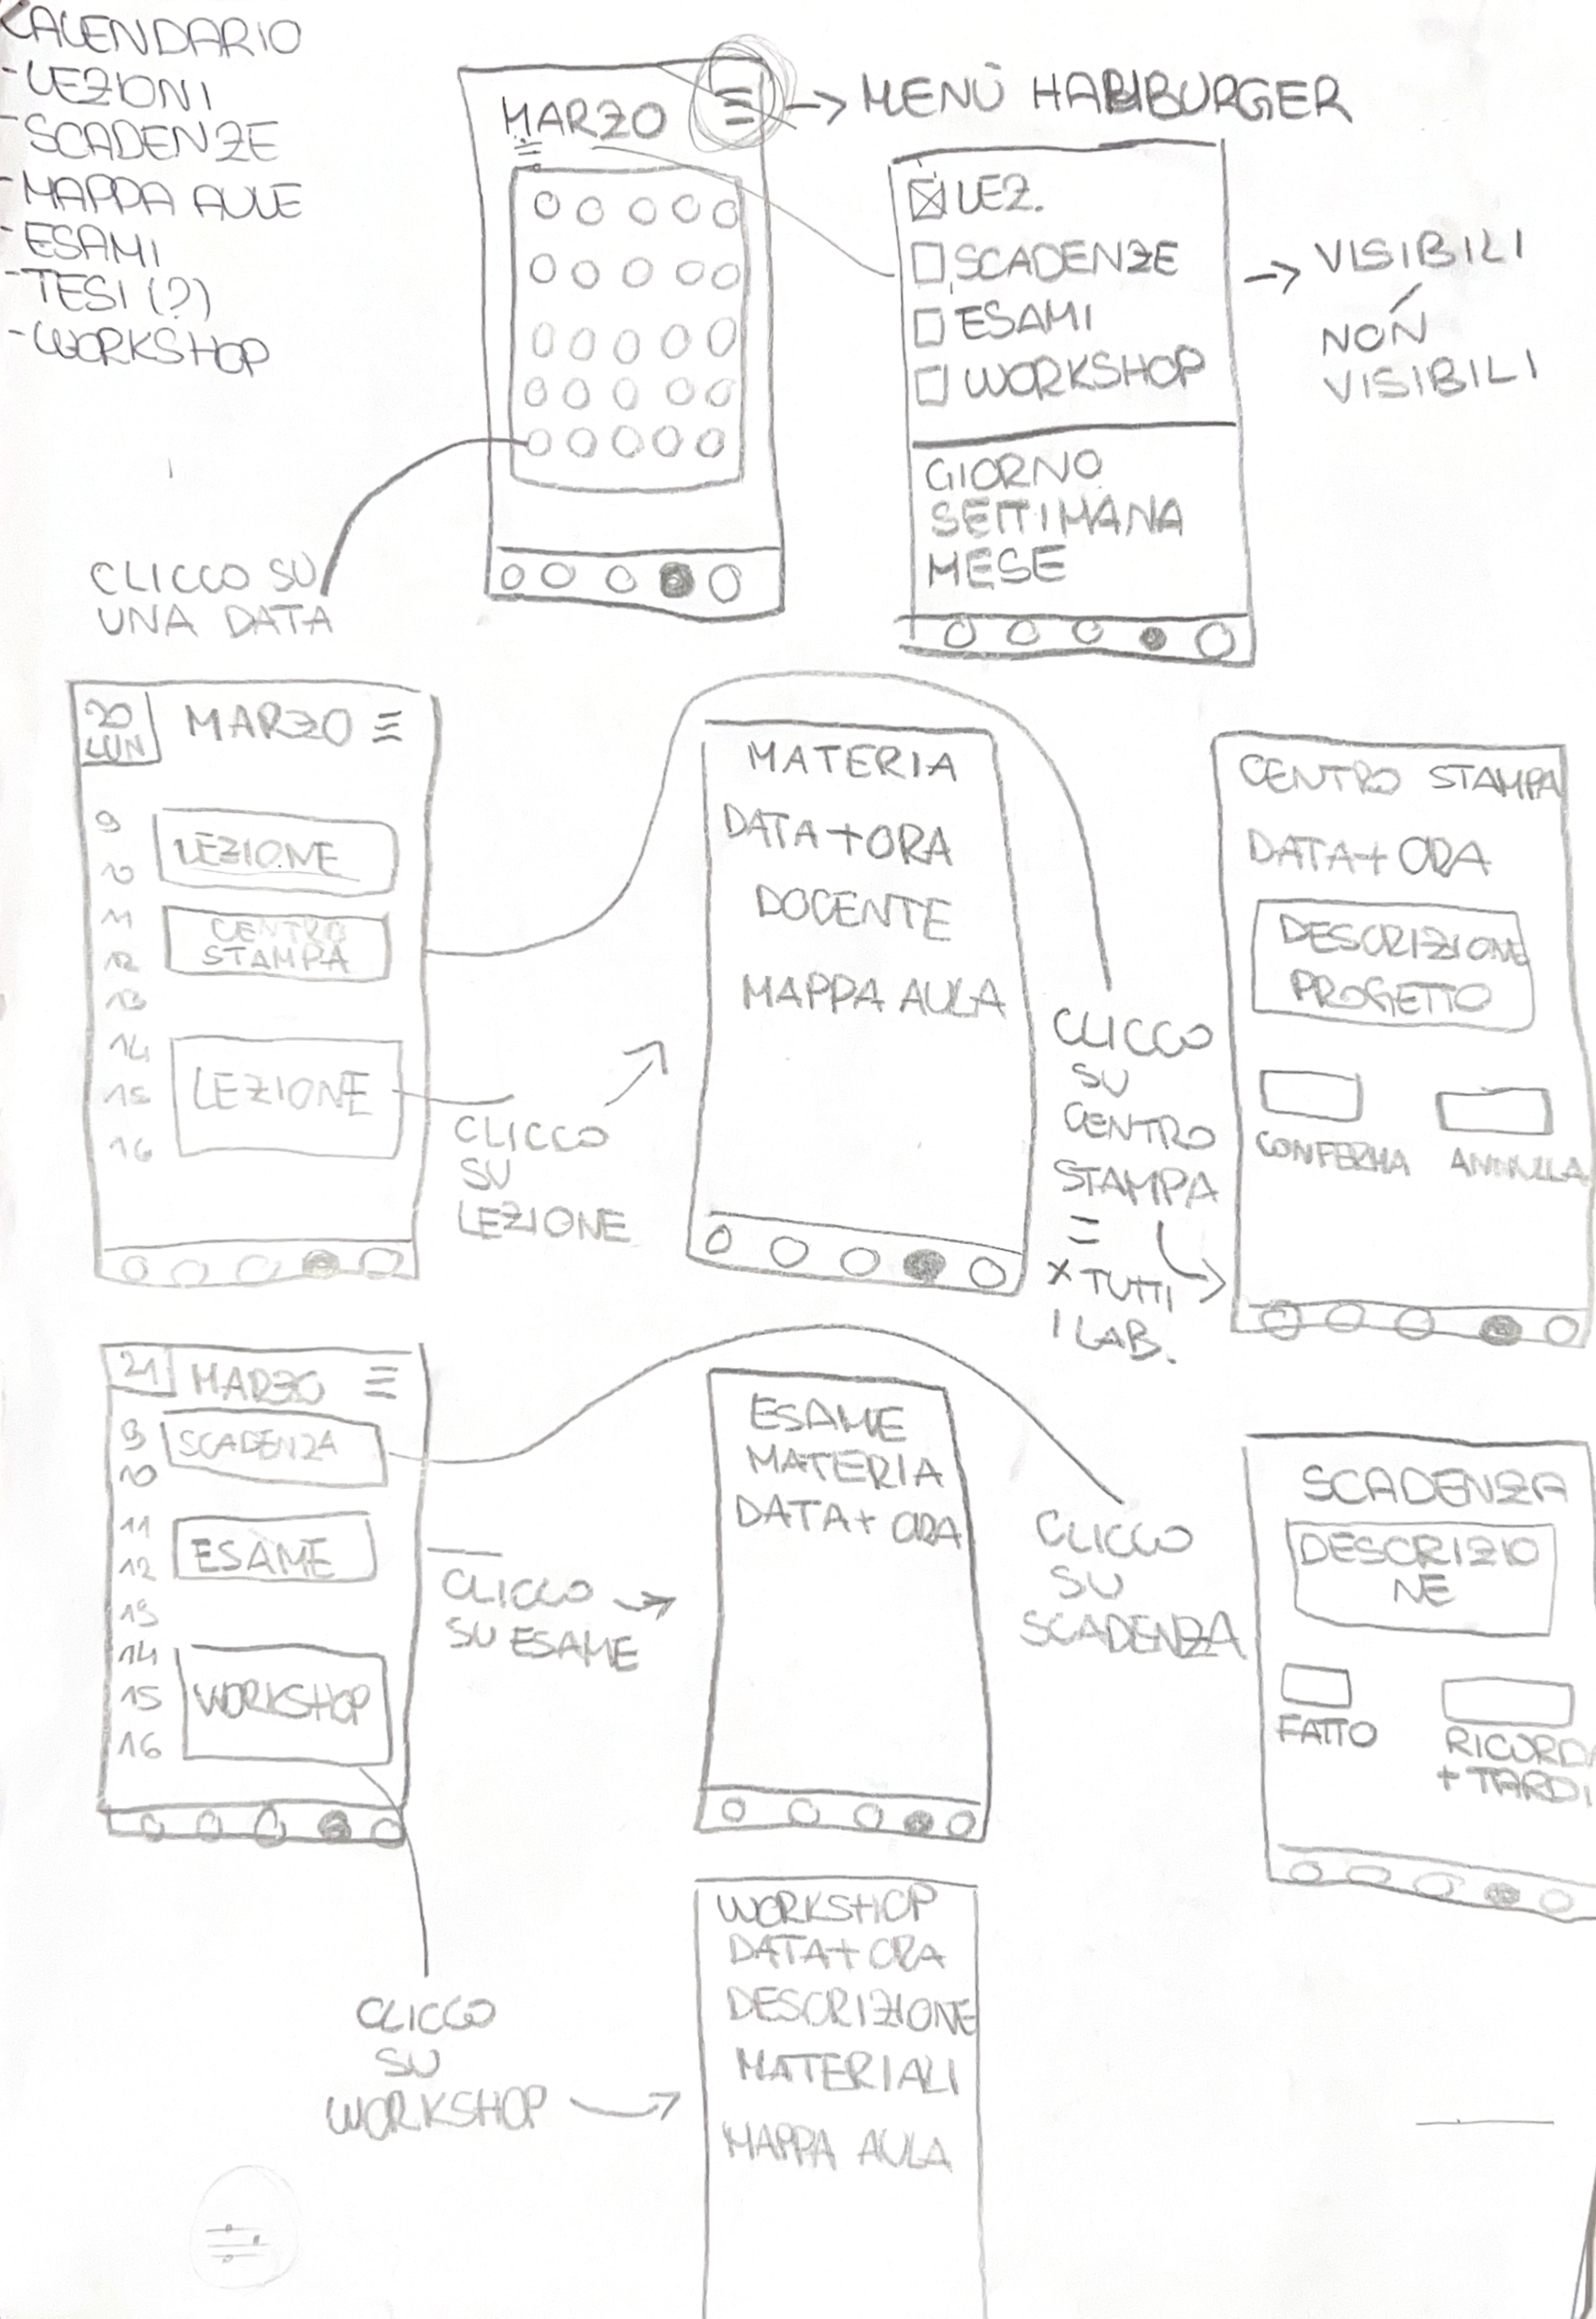 CALENDARIO
- LEZIONI
- SCADENZE
- MAPPA AULE
- ESAMI
- TESI (?)
- WORKSHOP
MARZO
→ MENÙ HAMBURGER
LEZ.
SCADENZE
ESAMI
WORKSHOP
GIORNO
SETTIMANA
MESE
→ VISIBILI
/
NON
VISIBILI
CLICCO SU
UNA DATA
20
LUN
MARZO
9
10
11
12
13
14
15
16
LEZIONE
CENTRO
STAMPA
LEZIONE
CLICCO
SU
LEZIONE
MATERIA
DATA + ORA
DOCENTE
MAPPA AULA
CLICCO
SU
CENTRO
STAMPA
=
X TUTTI
I LAB.
CENTRO STAMPA
DATA + ORA
DESCRIZIONE
PROGETTO
CONFERMA
ANNULLA
21
MARZO
9
10
11
12
13
14
15
16
SCADENZA
ESAME
WORKSHOP
CLICCO →
SU ESAME
ESAME
MATERIA
DATA + ORA
CLICCO
SU
SCADENZA
SCADENZA
DESCRIZIO
NE
FATTO
RICORDA
+ TARDI
CLICCO
SU
WORKSHOP
WORKSHOP
DATA + ORA
DESCRIZIONE
MATERIALI
MAPPA AULA